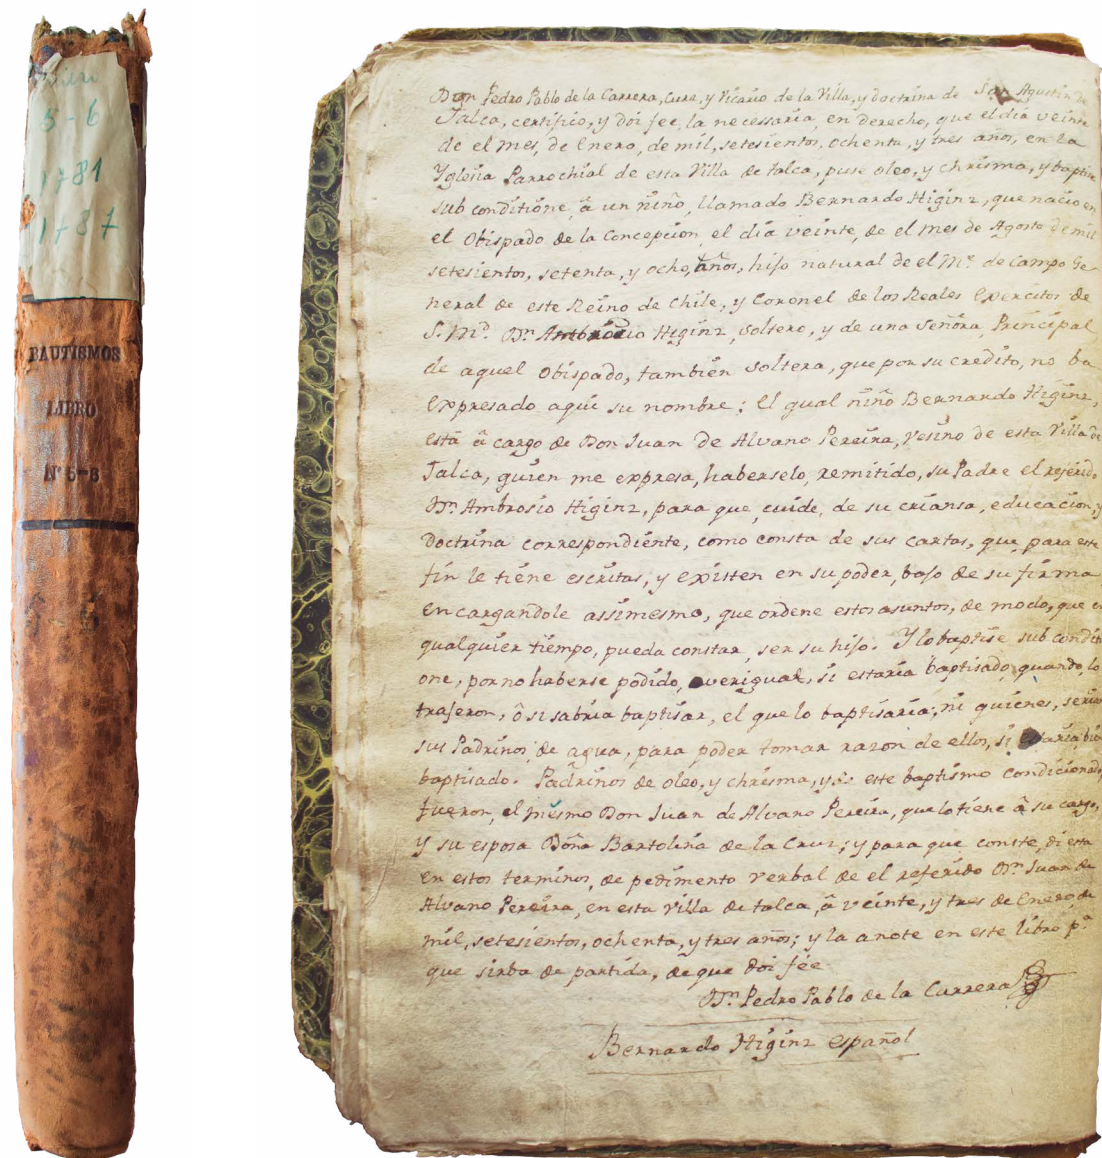 5-6
1781
1787
BAUTISMOS
LIBRO
Nº 5-6
Don Pedro Pablo de la Carrera, Cura, y Vicario de la Villa, y doctrina de San Agustin de
Talca, certifico, y doi feé, la necessaria, en derecho, que el dia veinte
de el mes, de Enero, de mil, setesientos, ochenta, y tres años, en la
Yglesia Parrochial de esta Villa de talca, puse oleo, y chrisma, y baptise
sub conditióne, â un niño, llamado Bernardo Higinz, que nacio en
el Obispado de la Concepcion, el dia veinte, de el mes de Agosto de mil
setesientos, setenta, y ocho, años, hijo natural de el Mº. de Campo Ge-
neral de este Reino de Chile, y Coronel de los Reales Exercitos de
S. Mᵈ. Dⁿ. Ambrocio Higinz, soltero, y de una Señora Principal,
de aquel Obispado, tambien soltera, que por su credito, no ba
expresado aqui su nombre; el qual niño Bernardo Higinz,
está â cargo de Don Juan de Alvano Pereira, vesino de esta Villa de
Talca, quien me expresa, haberselo, remitido, su Padre el referido
Dⁿ. Ambrosio Higinz, para que, cuide, de su criansa, educacion, y
Doctrina correspondiente, como consta de sus cartas, que para este
fin le tiene escritas, y existen en su poder, bajo de su firma
encargandole assimesmo, que ordene estos asuntos, de modo, que en
qualquier tiempo, pueda constar, ser su hijo. Y lo baptise sub conditi
one, por no haberse podido, averigual, si estaria baptisado, quando, lo
trajeron, ô si sabria baptisar, el que lo baptisaria; ni quienes, serian
sus Padrinos de agua, para poder tomar razon de ellos, si estaria, bien
baptisado. Padrinos de oleo, y chrisma, y de este baptismo condicionado,
fueron, el mesmo Don Juan de Alvano Pereira, que lo tiene â su cargo,
y su esposa Doña Bartolina de la Cruz; y para que conste, di esta
en estos terminos, de pedimento verbal de el referido Dⁿ. Juan de
Alvano Pereira, en esta Villa de talca, â veinte, y tres de Enero, de
mil, setesientos, ochenta, y tres años; y la anote en este libro pª
que sirba de partida, de que doi feé
Dⁿ. Pedro Pablo de la Carrera
Bernardo Higinz español